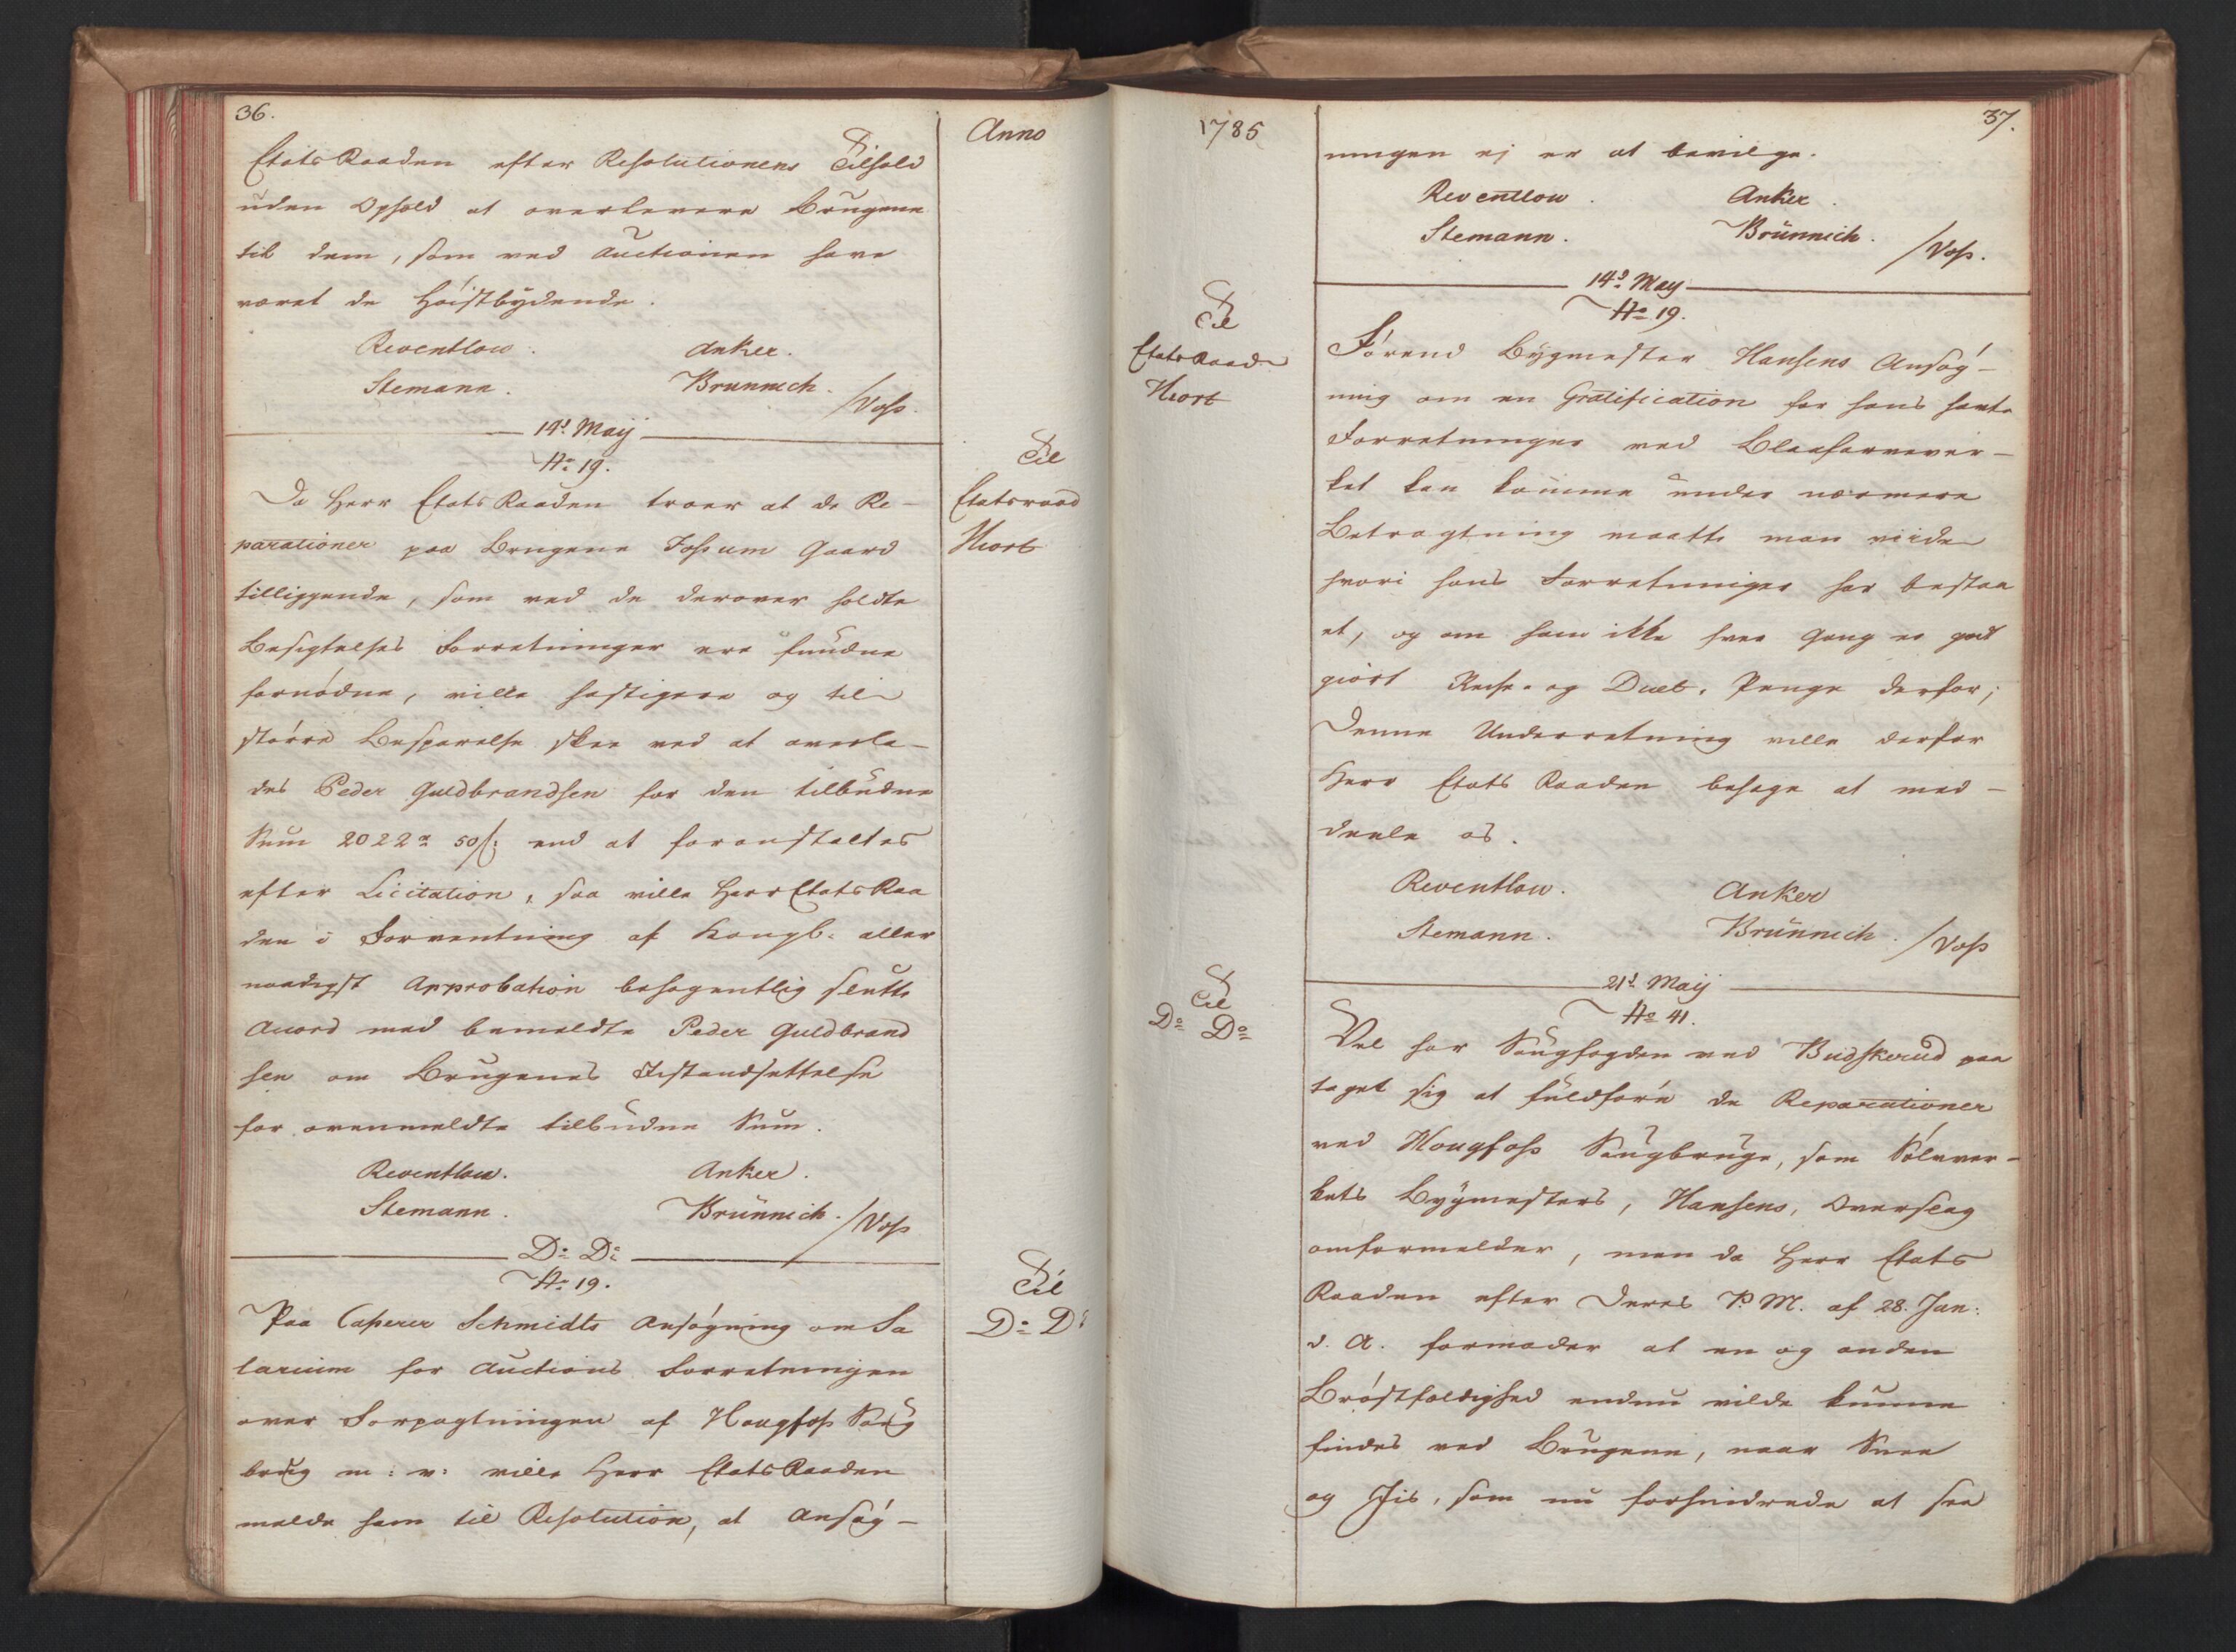 36.
Anno
EtatsRaaden efter Resolutionens Tilhold
uden Ophold at overlevere Brugene
til dem, som ved Auctionen have
været de Høistbydende.
Reventlow. Anker.
Stemann. Brünnich. /Voss.
14d. Maij
No 19.
Til
Etatsraad
Hiort
Da Herr EtatsRaaden troer at de Re-
parationer paa Brugene Fossum Gaard
tilliggende, som ved de derover holdte
Besigtelses Forretninger ere fundne
fornødne, ville hastigere og til
større Besparelse skee ved at overla-
des Peder Guldbrandsen for den tilbudne
Sum 2022 50 s: end at foranstaltes
efter Licitation, saa ville Herr EtatsRaa
den i Forventning af Kongl. aller
naadigst Approbation behagentlig slutte
Accord med bemeldte Peder Guldbrand
sen om Brugenes Istandsettelse
for ovenmeldte tilbudne Sum.
Reventlow. Anker.
Stemann. Brünnich. /Voss
Do Do
No 19.
Til
Do Do
Paa Casserer Schmidts Ansøgning om Sa
larium for Auctions Forretningen
over Forpagtningen af Hougfoss Saug
brug m: v: ville Herr EtatsRaaden
melde ham til Resolution, at Ansøg-
1785
37.
ningen ej er at bevilge.
Reventlow. Anker.
Stemann. Brünnich. /Voss.
14d. May
No 19.
Til
EtatsRaad
Hiort
Førend Bygmester Hansens Ansøg-
ning om en Gratification for hans havte
Forretninger ved Blaafarvever-
ket kan komme under nærmere
Betragtning maatte man viide
hvori hans Forretninger har bestaa
et, og om ham ikke hver Gang er god
giort Reise- og Diæt-Penge derfor;
Denne Underretning ville derfor
Herr Etats Raaden behage at med-
deele os.
Reventlow. Anker
Stemann. Brünnich. /Voss
21d. Maij
No 41.
Til
Do Do
Vel har Saugfogden ved Budskerud paa
taget sig at fuldføre de Reparationer
ved Hougfoss Saugbruge, som Sølvver-
kets Bygmesters, Hansens, Overslag
omformelder, men da Herr Etats
Raaden efter Deres P. M. af 28. Jan:
d. A. formoder at en og anden
Brøstfældighed endnu vilde kunne
findes ved Brugene, naar Snee
og Iis, som nu forhindrede at see